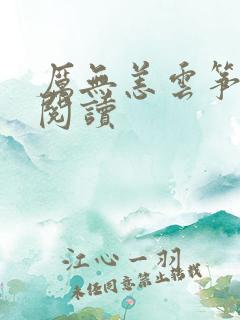 厲無恙雲箏
閱讀
江心一羽
未经同意禁止转载